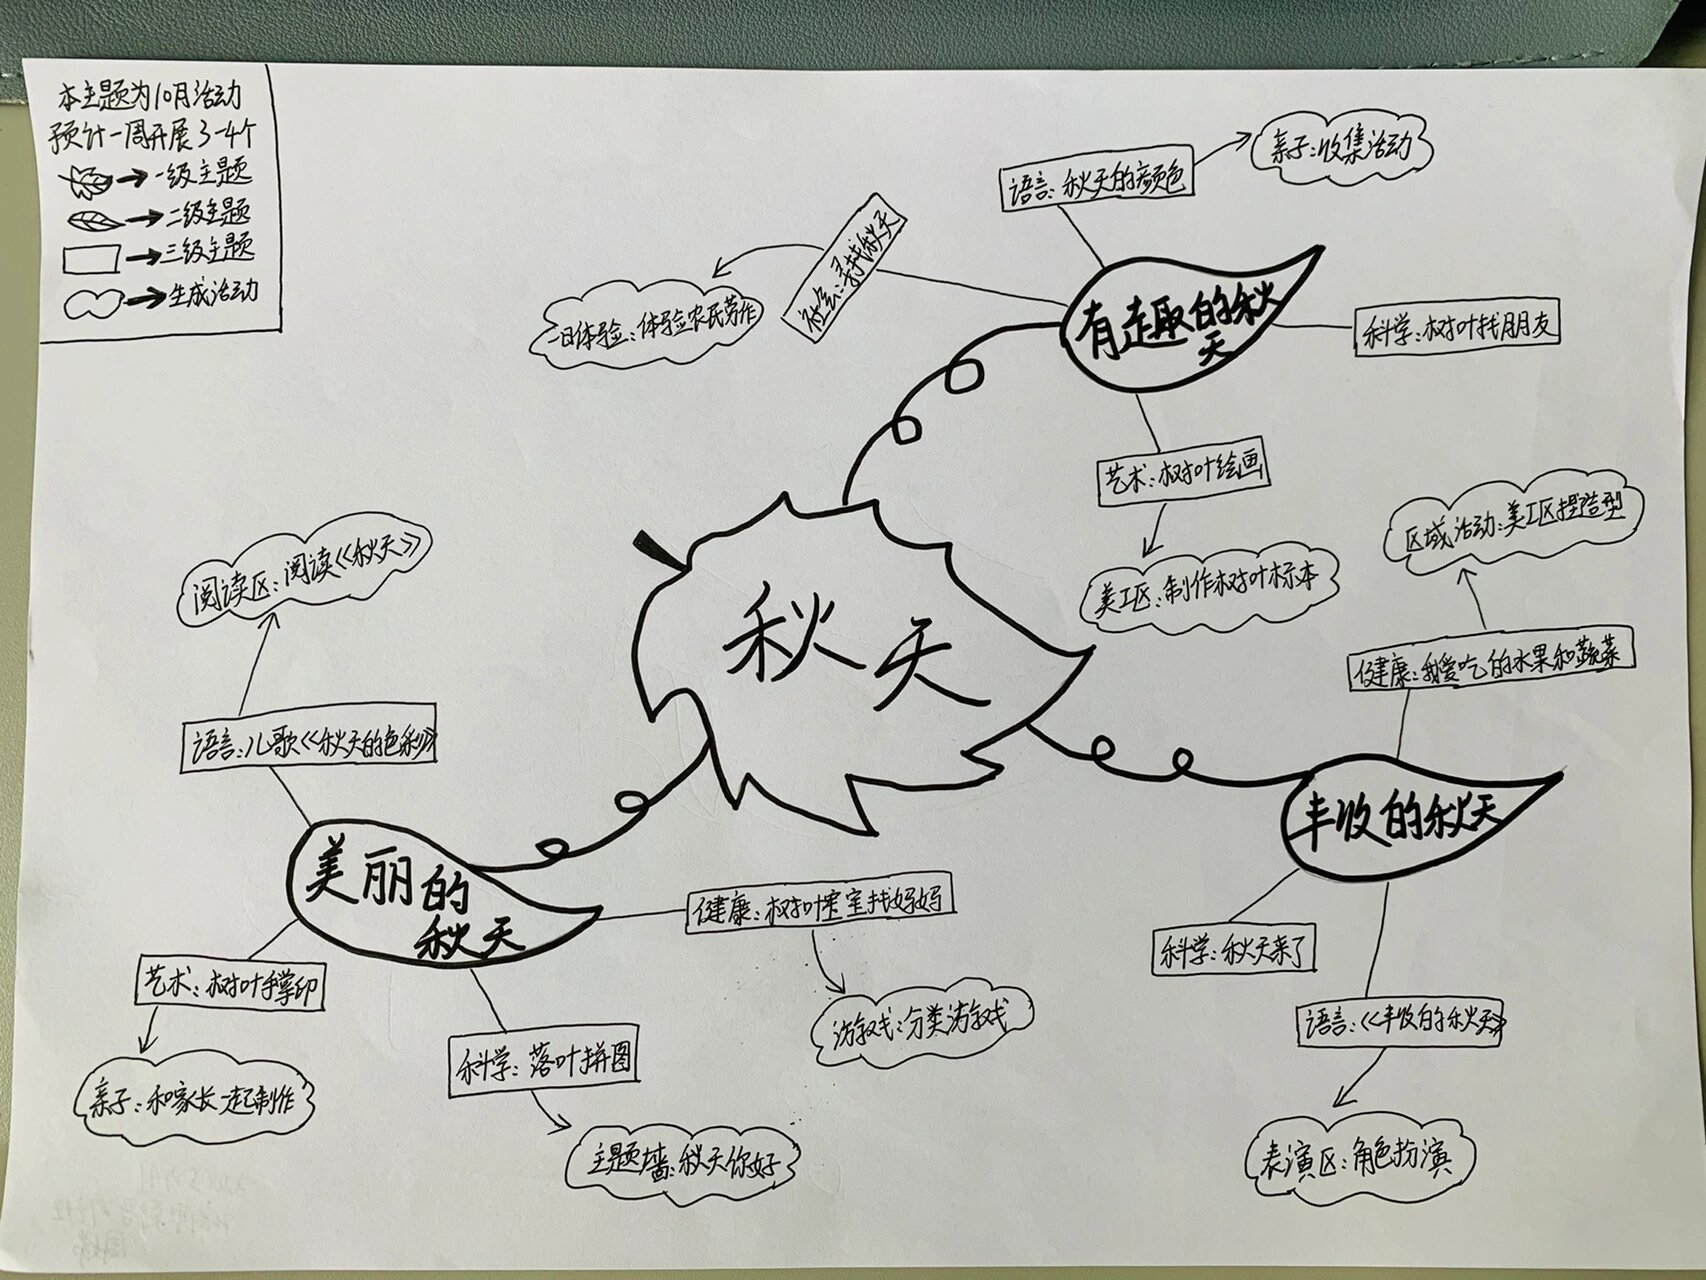 本主题为10月活动
预计一周开展3-4个
一级主题
二级主题
三级主题
生成活动
亲子:收集活动
语言:秋天的颜色
社会:寻找秋天
一日体验:体验农民劳作
有趣的秋
天
科学:树叶找朋友
艺术:树叶绘画
美工区:制作树叶标本
区域活动:美工区捏造型
健康:我爱吃的水果和蔬菜
秋天
丰收的秋天
科学:秋天来了
语言:《丰收的秋天》
表演区:角色扮演
阅读区:阅读《秋天》
语言:儿歌《秋天的色彩》
美丽的
秋天
健康:树叶宝宝找妈妈
游戏:分类游戏
艺术:树叶手掌印
亲子:和家长一起制作
科学:落叶拼图
主题墙:秋天你好